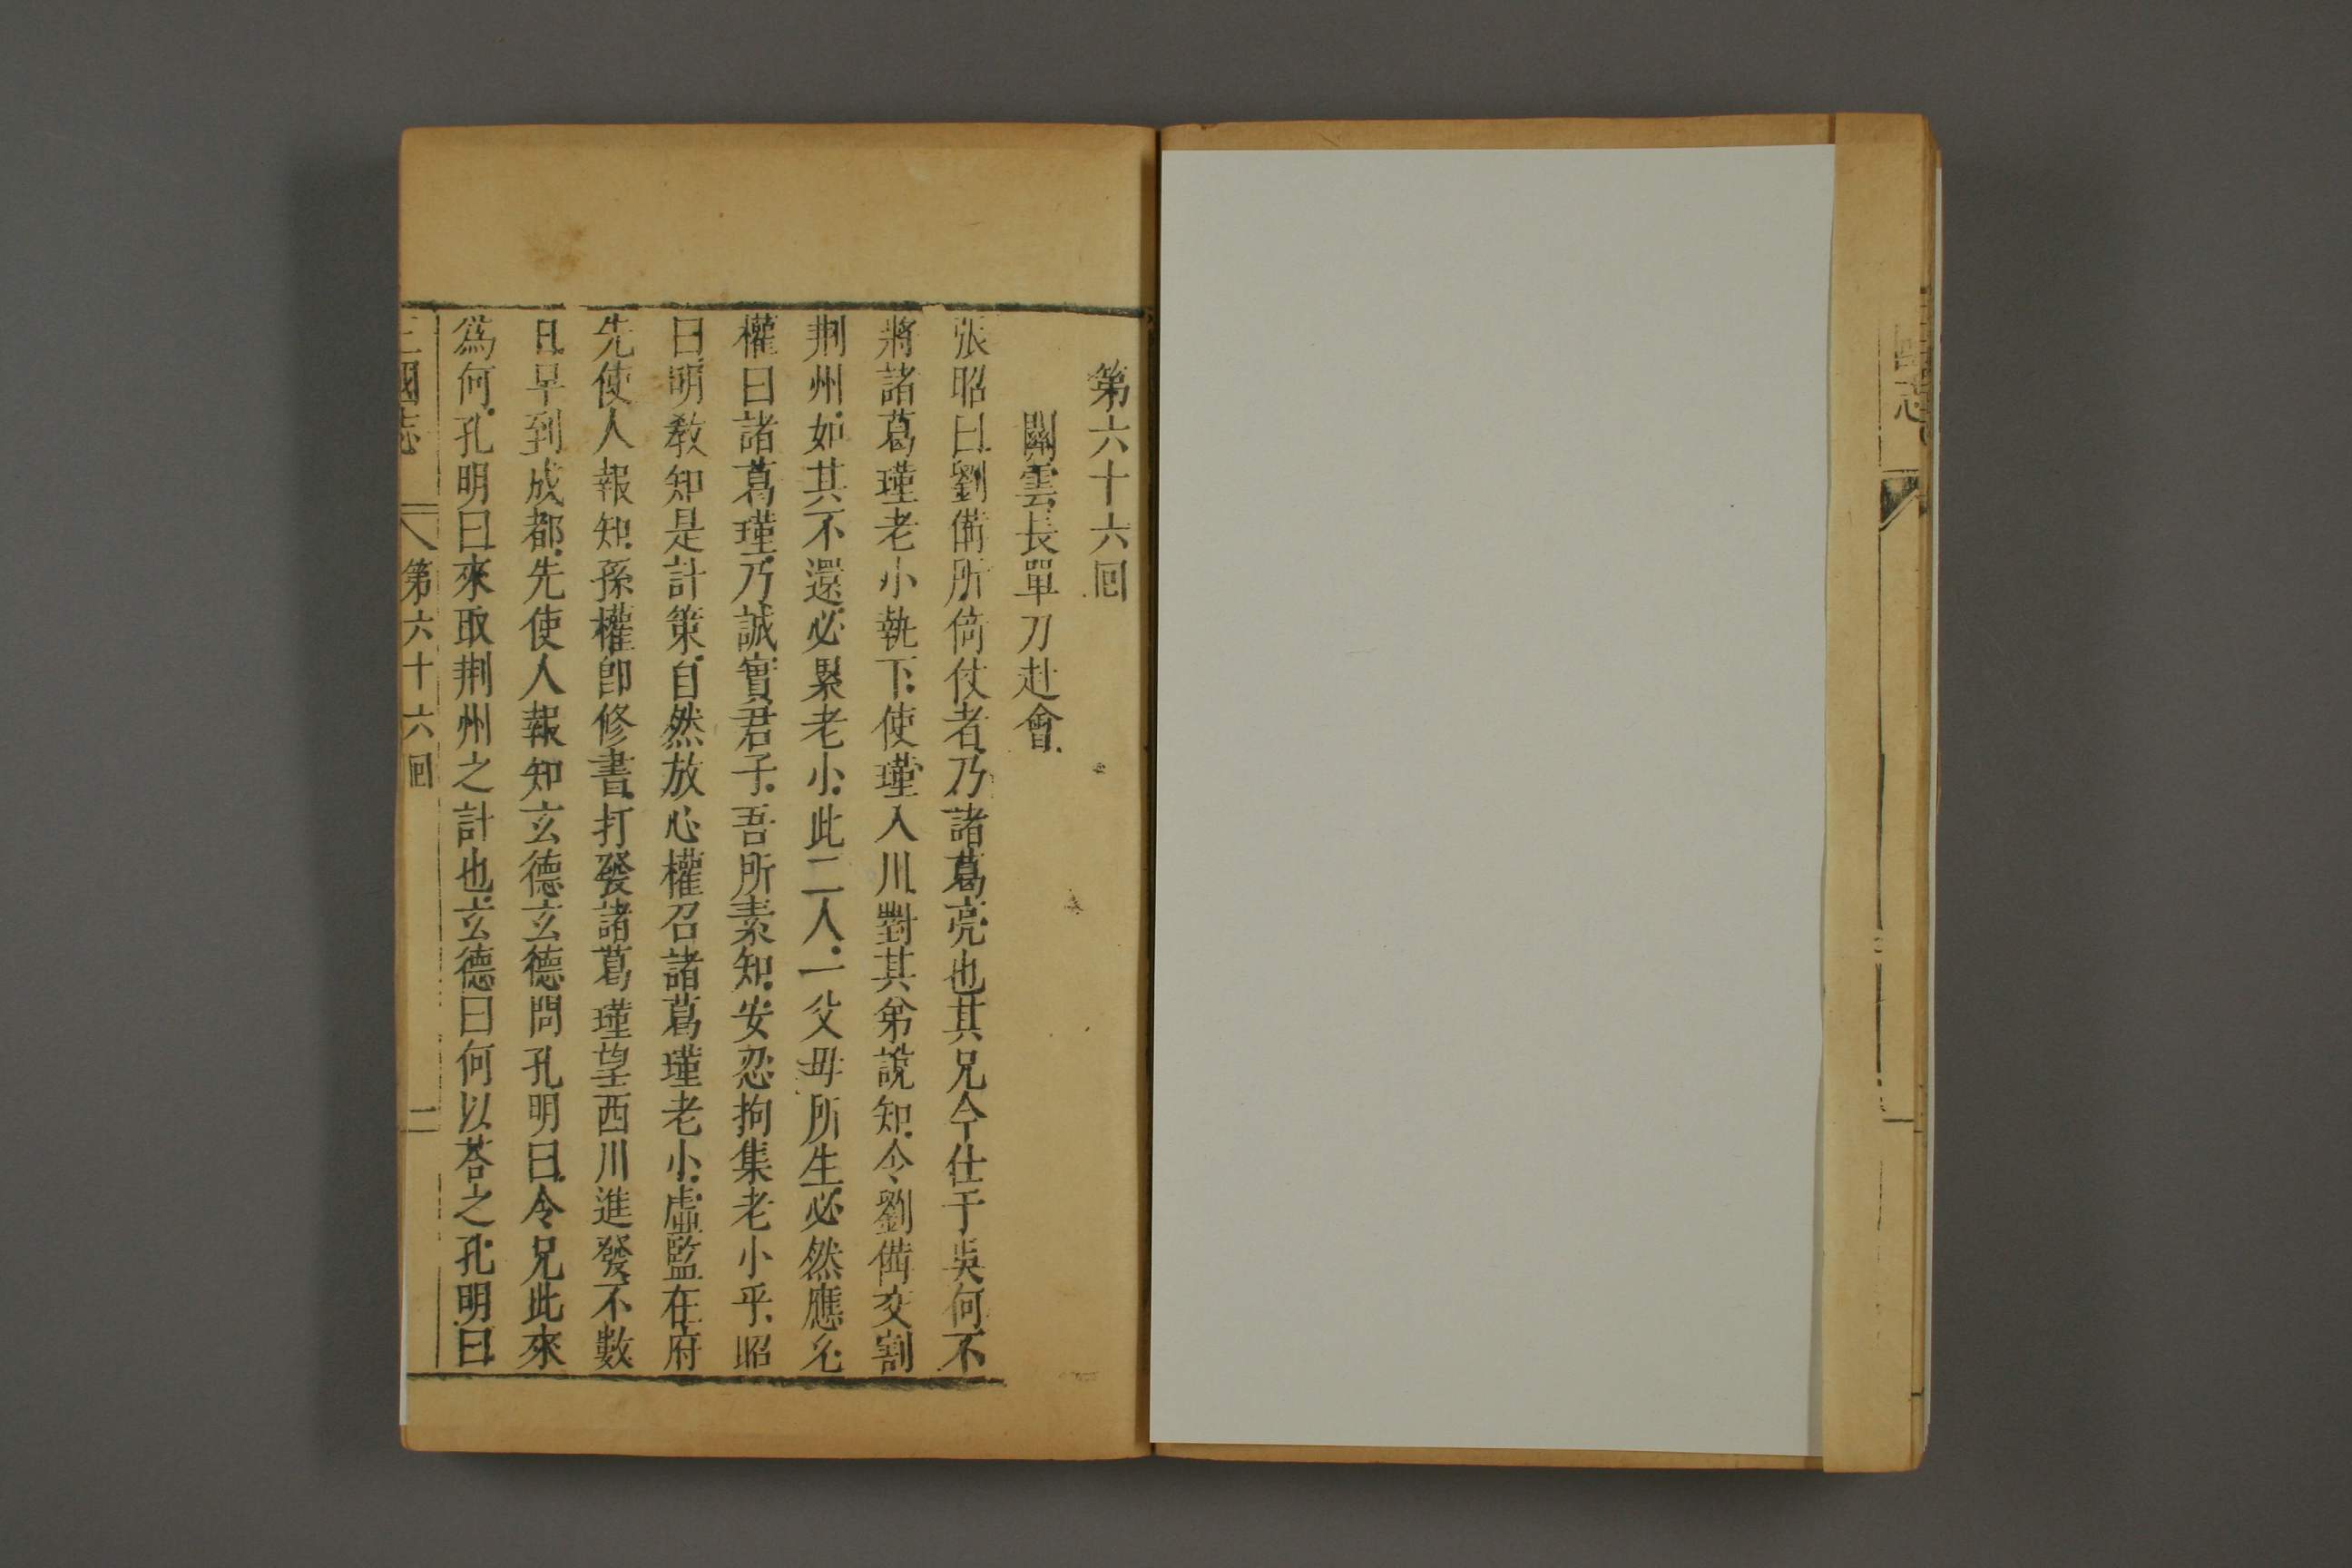 第六十六囘
關雲長單刀赴會
張昭曰劉備所倚仗者乃諸葛亮也其兄今仕于吳何不
將諸葛瑾老小執下使瑾入川對其弟說知令劉備交割
荆州如其不還必累老小此二人一父母所生必然應允
權曰諸葛瑾乃誠實君子吾所素知安忍拘集老小乎昭
曰明敎知是計策自然放心權召諸葛瑾老小虛監在府
先使人報知孫權卽修書打發諸葛瑾望西川進發不數
日早到成都先使人報知玄德玄德問孔明曰令兄此來
爲何孔明曰來取荆州之計也玄德曰何以荅之孔明曰
三國志 第六十六囘 二
國志